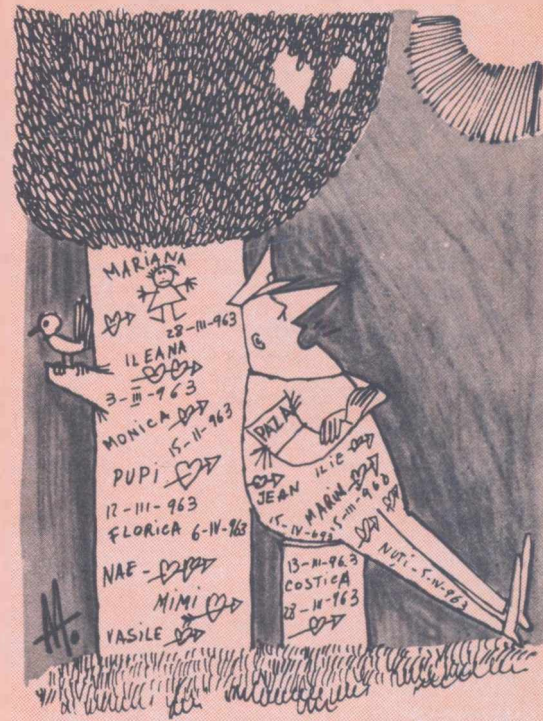 MARIANA
28-III-963
ILEANA
3-III-963
MONICA
15-II-963
PUPI
12-III-963
FLORICA 6-IV-963
NAE-
MIMI
VASILE
PAZA
ILIE
JEAN
MARIN
15-IV-693
15-III-963
NUTI-5-IV-963
13-III-963
COSTICA
28-IV-963